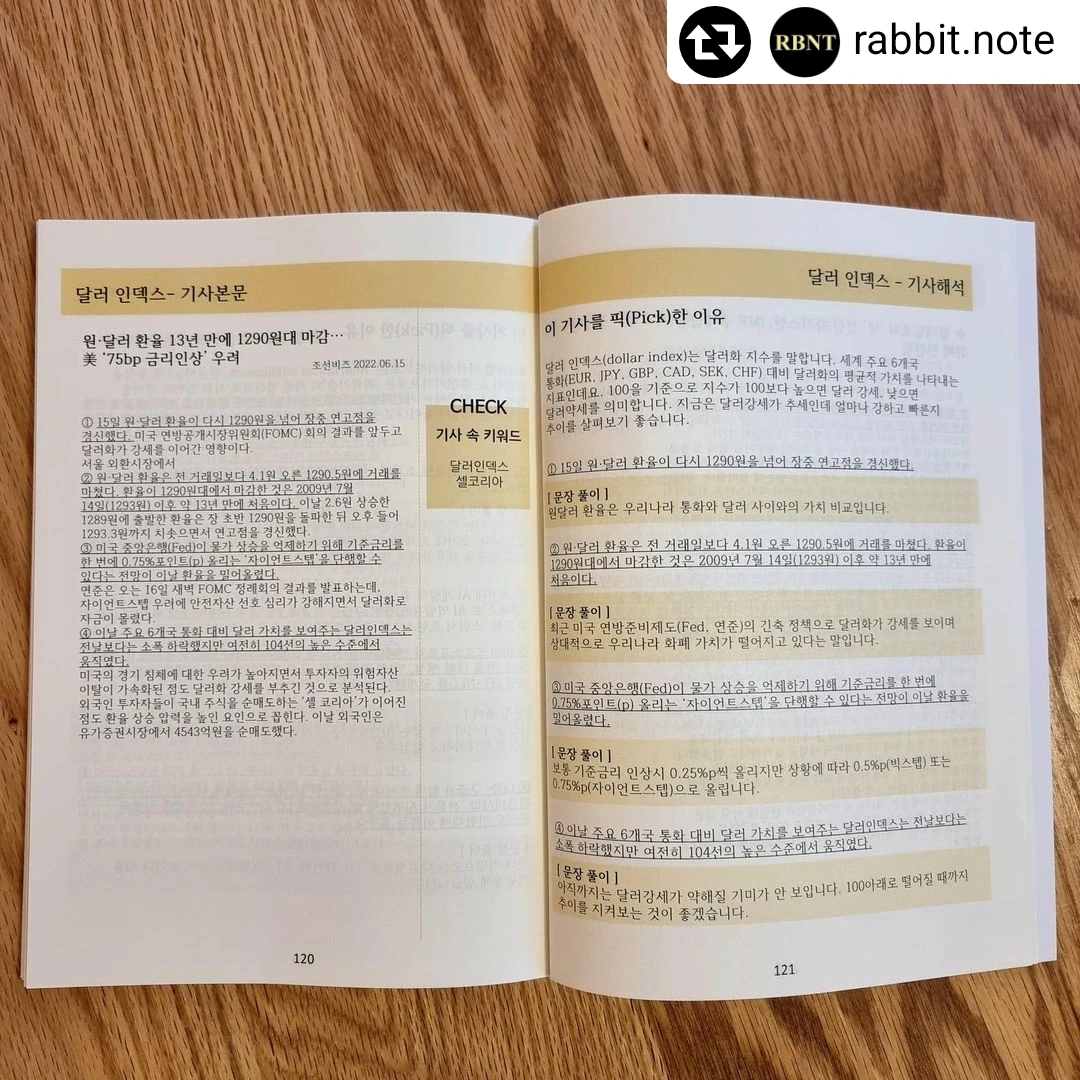 RBNT rabbit.note
달러 인덱스- 기사본문
원·달러 환율 13년 만에 1290원대 마감…
美 '75bp 금리인상' 우려
조선비즈 2022.06.15
① 15일 원·달러 환율이 다시 1290원을 넘어 장중 연고점을
경신했다. 미국 연방공개시장위원회(FOMC) 회의 결과를 앞두고
달러화가 강세를 이어간 영향이다.
서울 외환시장에서
② 원·달러 환율은 전 거래일보다 4.1원 오른 1290.5원에 거래를
마쳤다. 환율이 1290원대에서 마감한 것은 2009년 7월
14일(1293원) 이후 약 13년 만에 처음이다. 이날 2.6원 상승한
1289원에 출발한 환율은 장 초반 1290원을 돌파한 뒤 오후 들어
1293.3원까지 치솟으면서 연고점을 경신했다.
③ 미국 중앙은행(Fed)이 물가 상승을 억제하기 위해 기준금리를
한 번에 0.75%포인트(p) 올리는 '자이언트스텝'을 단행할 수
있다는 전망이 이날 환율을 밀어올렸다.
연준은 오는 16일 새벽 FOMC 정례회의 결과를 발표하는데,
자이언트스텝 우려에 안전자산 선호 심리가 강해지면서 달러화로
자금이 몰렸다.
④ 이날 주요 6개국 통화 대비 달러 가치를 보여주는 달러인덱스는
전날보다는 소폭 하락했지만 여전히 104선의 높은 수준에서
움직였다.
미국의 경기 침체에 대한 우려가 높아지면서 투자자의 위험자산
이탈이 가속화된 점도 달러화 강세를 부추긴 것으로 분석된다.
외국인 투자자들이 국내 주식을 순매도하는 '셀 코리아'가 이어진
점도 환율 상승 압력을 높인 요인으로 꼽힌다. 이날 외국인은
유가증권시장에서 4543억원을 순매도했다.
CHECK
기사 속 키워드
달러인덱스
셀코리아
120
달러 인덱스 - 기사해석
이 기사를 픽(Pick)한 이유
달러 인덱스(dollar index)는 달러화 지수를 말합니다. 세계 주요 6개국
통화(EUR, JPY, GBP, CAD, SEK, CHF) 대비 달러화의 평균적 가치를 나타내는
지표인데요. 100을 기준으로 지수가 100보다 높으면 달러 강세, 낮으면
달러약세를 의미합니다. 지금은 달러강세가 추세인데 얼마나 강하고 빠른지
추이를 살펴보기 좋습니다.
① 15일 원·달러 환율이 다시 1290원을 넘어 장중 연고점을 경신했다.
[ 문장 풀이 ]
원달러 환율은 우리나라 통화와 달러 사이와의 가치 비교입니다.
② 원·달러 환율은 전 거래일보다 4.1원 오른 1290.5원에 거래를 마쳤다. 환율이
1290원대에서 마감한 것은 2009년 7월 14일(1293원) 이후 약 13년 만에
처음이다.
[ 문장 풀이 ]
최근 미국 연방준비제도(Fed, 연준)의 긴축 정책으로 달러화가 강세를 보이며
상대적으로 우리나라 화폐 가치가 떨어지고 있다는 말입니다.
③ 미국 중앙은행(Fed)이 물가 상승을 억제하기 위해 기준금리를 한 번에
0.75%포인트(p) 올리는 '자이언트스텝'을 단행할 수 있다는 전망이 이날 환율을
밀어올렸다.
[ 문장 풀이 ]
보통 기준금리 인상시 0.25%p씩 올리지만 상황에 따라 0.5%p(빅스텝) 또는
0.75%p(자이언트스텝)으로 올립니다.
④ 이날 주요 6개국 통화 대비 달러 가치를 보여주는 달러인덱스는 전날보다는
소폭 하락했지만 여전히 104선의 높은 수준에서 움직였다.
[ 문장 풀이 ]
아직까지는 달러강세가 약해질 기미가 안 보입니다. 100아래로 떨어질 때까지
추이를 지켜보는 것이 좋겠습니다.
121